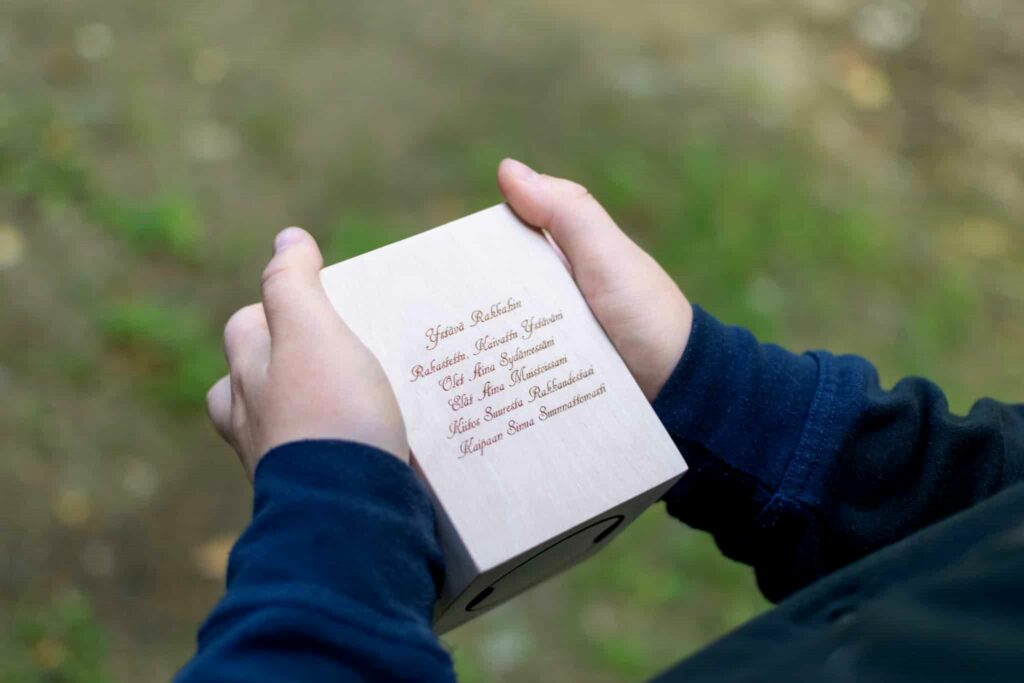 Ystävä Rakkahin
Rakastettu, Kaivattu Ystäväni
Olet Aina Sydämessäni
Elät Aina Muistoissani
Kiitos Suuresta Rakkaudestasi
Kaipaan Sinua Suunnattomasti